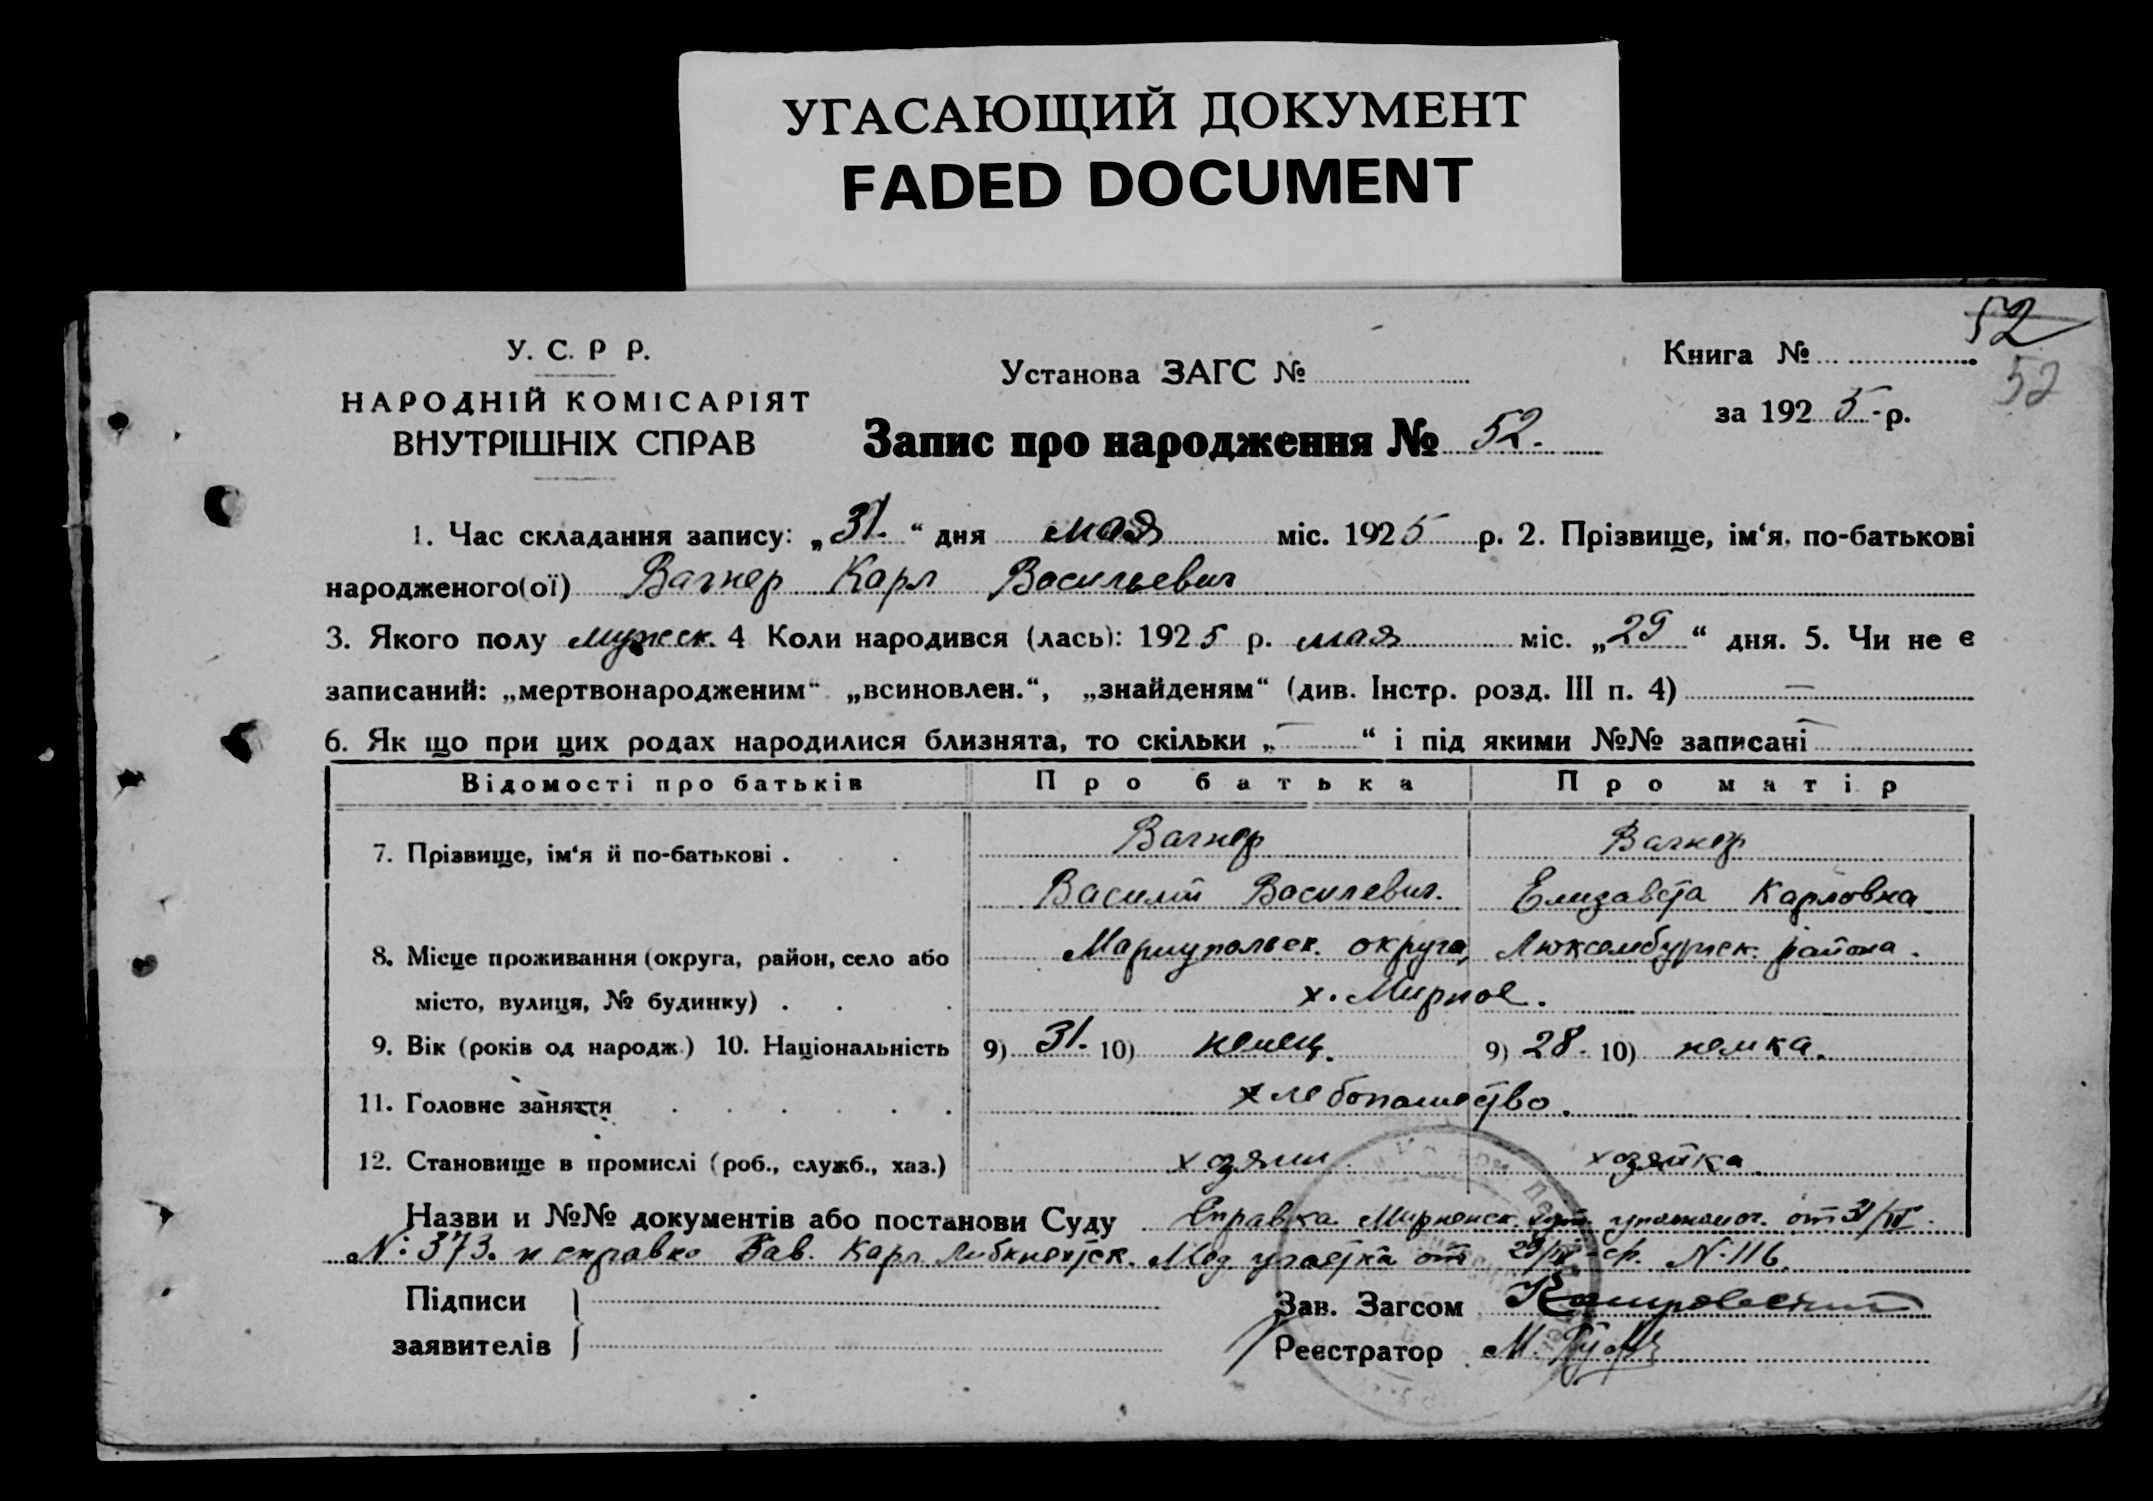 УГАСАЮЩИЙ ДОКУМЕНТ
FADED DOCUMENT
52
У. С. Р Р.
НАРОДНІЙ КОМІСАРІЯТ
ВНУТРІШНІХ СПРАВ
Установа ЗАГС №
Запис про народження № 52.
Книга №
52
за 1925-р.
1. Час складання запису: „31.“ дня мая міс. 1925 р. 2. Прізвище, ім‘я, по-батькові
народженого(ої) Вагнер Карл Васильевич
3. Якого полу мужеск. 4 Коли народився (лась): 1925 р. мая міс. „29“ дня. 5. Чи не є
записаний: „мертвонародженим“ „всиновлен.“, „знайденям“ (див. Інстр. розд. III п. 4) —
6. Як що при цих родах народилися близнята, то скільки „—“ і під якими №№ записані —
Відомості про батьків Про батька Про матір
7. Прізвище, ім‘я й по-батькові . Вагнер Вагнер
Василий Василевич. Елизавета Карловна
8. Місце проживання (округа, район, село або Мариупольск. округа, Люксембургск. района.
місто, вулиця, № будинку) . х. Мирное.
9. Вік (років од народж.) 10. Національність 9) 31. 10) немец. 9) 28. 10) немка.
11. Головне заняття хлебопашество.
12. Становище в промислі (роб., служб., хаз.) хозяин хозяйка
Назви и №№ документів або постанови Суду Справка Мирненск. от 31/
№ 373. и справка Зав. Карл Либкнехтск. Мед участка от 29/ № 116.
Підписи
заявителів
Зав. Загсом
Реєстратор М.